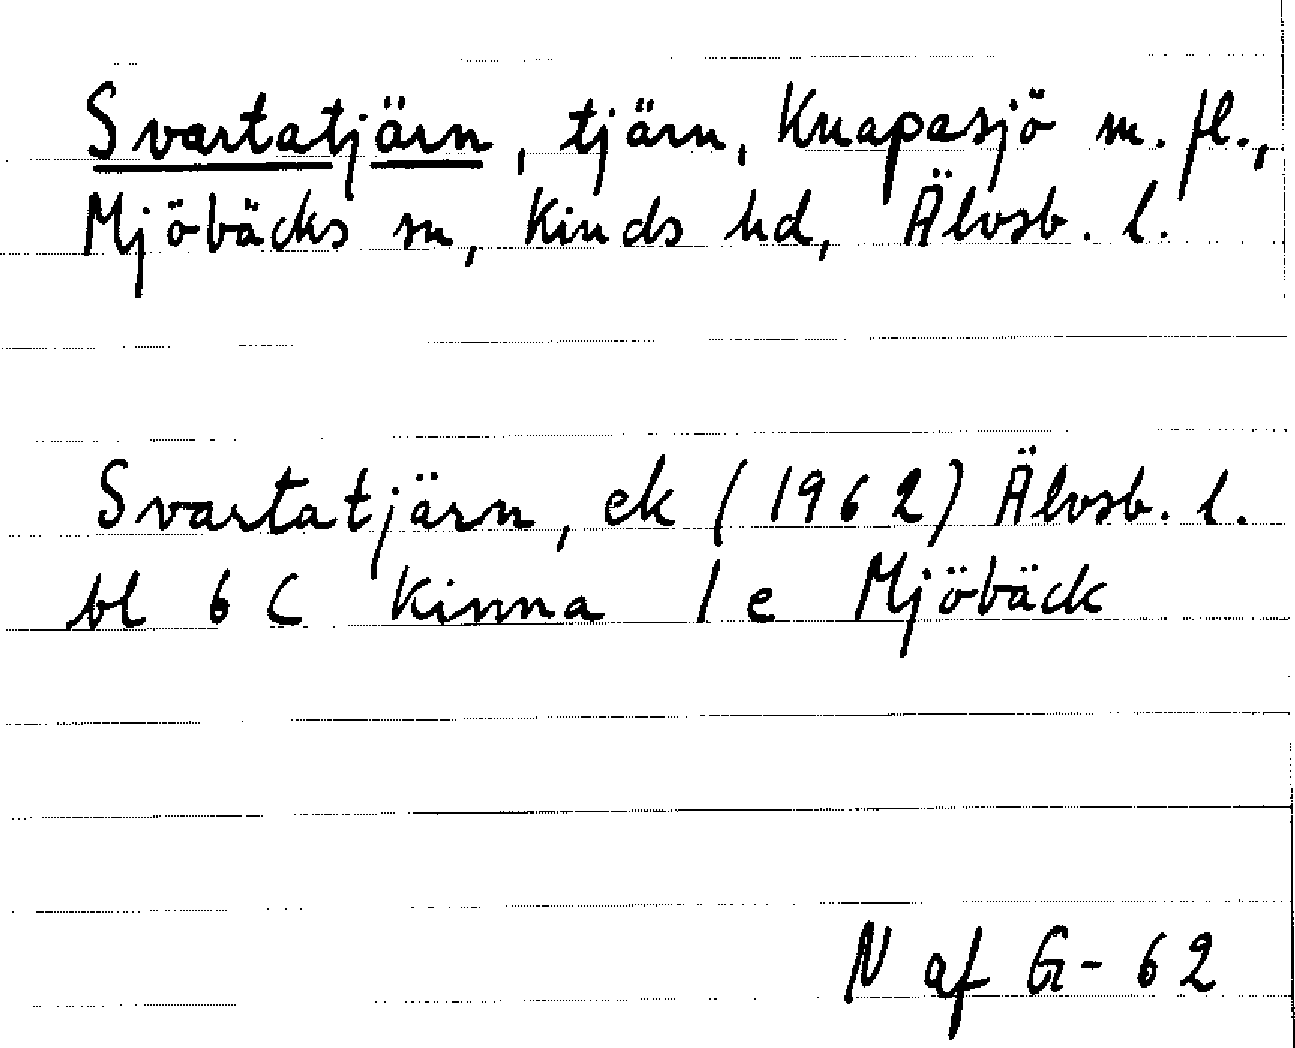 Svartatjärn, tjärn, Knapasjö m. fl.,
Mjöbäcks sn, Kinds hd, Älvsb. l.
Svartatjärn, ek (1962) Älvsb. l.
bl 6 C Kinna 1 e Mjöbäck
N af G-62